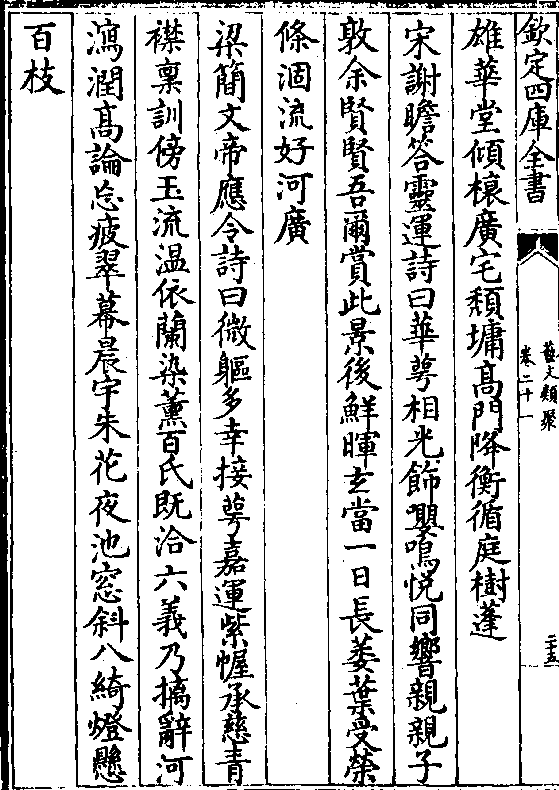 欽定四庫全書
藝文類聚
卷二十一
二十五
雄華堂傾榱廣宅頹墉高門降衡循庭樹蓬
宋謝瞻答靈運詩曰華萼相光飾嚶鳴悅同響親親子
敦余賢賢吾爾賞此景後鮮暉玄當一日長萎葉受榮
條涸流好河廣
梁簡文帝應令詩曰微軀多幸接萼嘉運紫幄承慈青
襟稟訓傍玉流温依蘭染薰百氏既洽六義乃摛辭河
瀉潤高論忘疲翠幕晨宇朱花夜池窓斜八綺燈懸
百枝